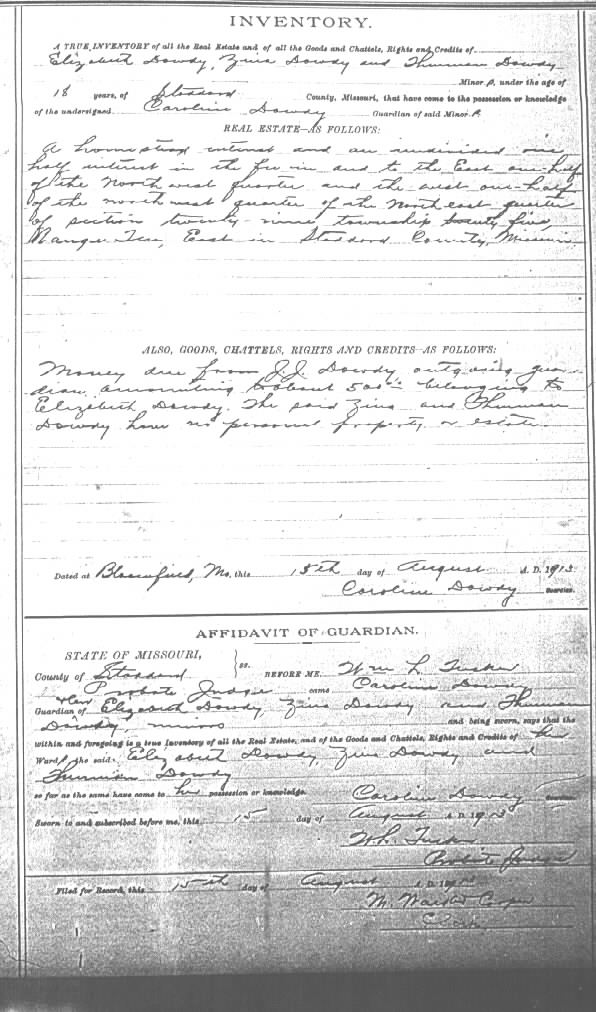 INVENTORY.
A TRUE INVENTORY of all the Real Estate and of all the Goods and Chattels, Rights and Credits of
Elizabeth Dowdy, Zina Dowdy and Thurman Dowdy
Minor s, under the age of
18 years, of Stoddard County, Missouri, that have come to the possession or knowledge
of the undersigned Caroline Dowdy Guardian of said Minor s.
REAL ESTATE—AS FOLLOWS:
A homestead interest and an undivided one
half interest in the fee in and to the East one-half
of the Northwest quarter and the west one-half
of the northwest quarter of the North east quarter
of section twenty nine township twenty five,
Range Ten, East in Stoddard County, Missouri
ALSO, GOODS, CHATTELS, RIGHTS AND CREDITS—AS FOLLOWS:
Money due from J.J. Dowdy outgoing guar-
dian amounting to about 500 belonging to
Elizabeth Dowdy. The said Zina and Thurman
Dowdy have no personal property or estate
Dated at Bloomfield, Mo, this 15th day of August A. D. 191
Caroline Dowdy Guardian.
AFFIDAVIT OF GUARDIAN.
STATE OF MISSOURI,
County of Stoddard } ss. BEFORE ME, Wm L. Tucker
Probate Judge came Caroline Dowdy
Guardian of Elizabeth Dowdy, Zina Dowdy and Thurman
Dowdy, minors and being sworn, says that the
within and foregoing is a true Inventory of all the Real Estate, and of the Goods and Chattels, Rights and Credits of her
Ward s, the said Elizabeth Dowdy, Zina Dowdy and
Thurman Dowdy
so far as the same have come to her possession or knowledge. Caroline Dowdy Guardian
Sworn to and subscribed before me, this 15 day of August A. D. 19
W.L. Tucker
Probate Judge
Filed for Record, this 15th day of August A. D. 19
M. Cooper
Clerk